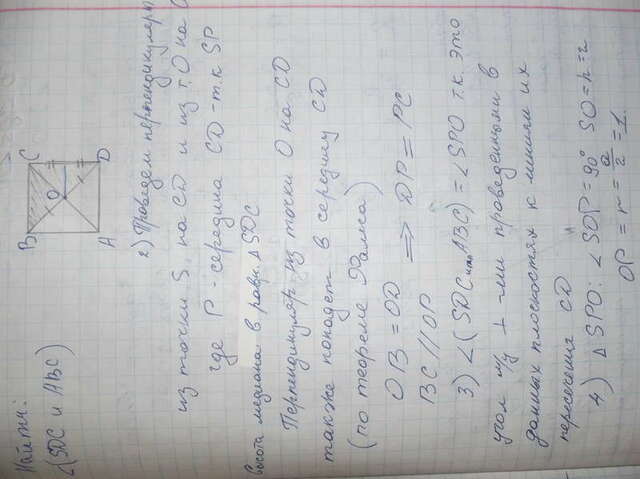 Найти:
∠(SDC и ABC)
B C
O
A D
2) Проведем перпендикуляры
из точки S, на CD и из т. O на
где P - середина CD - т.к SP
высота медиана в равн. △ SDC
Перпендикуляр из точки O на CD
также попадет в середину CD
(по теореме Фалеса)
OB = OD
BC // OP ⇒ DP = PC
3) ∠(SDC и ABC) = ∠SPO т.к. это
угол м/у ⊥-ми проведенными в
данных плоскостях к линиям их
пересечения CD
4) △ SPO: ∠SOP = 90° SO = h = 2
OP = r = a/2 = 1.